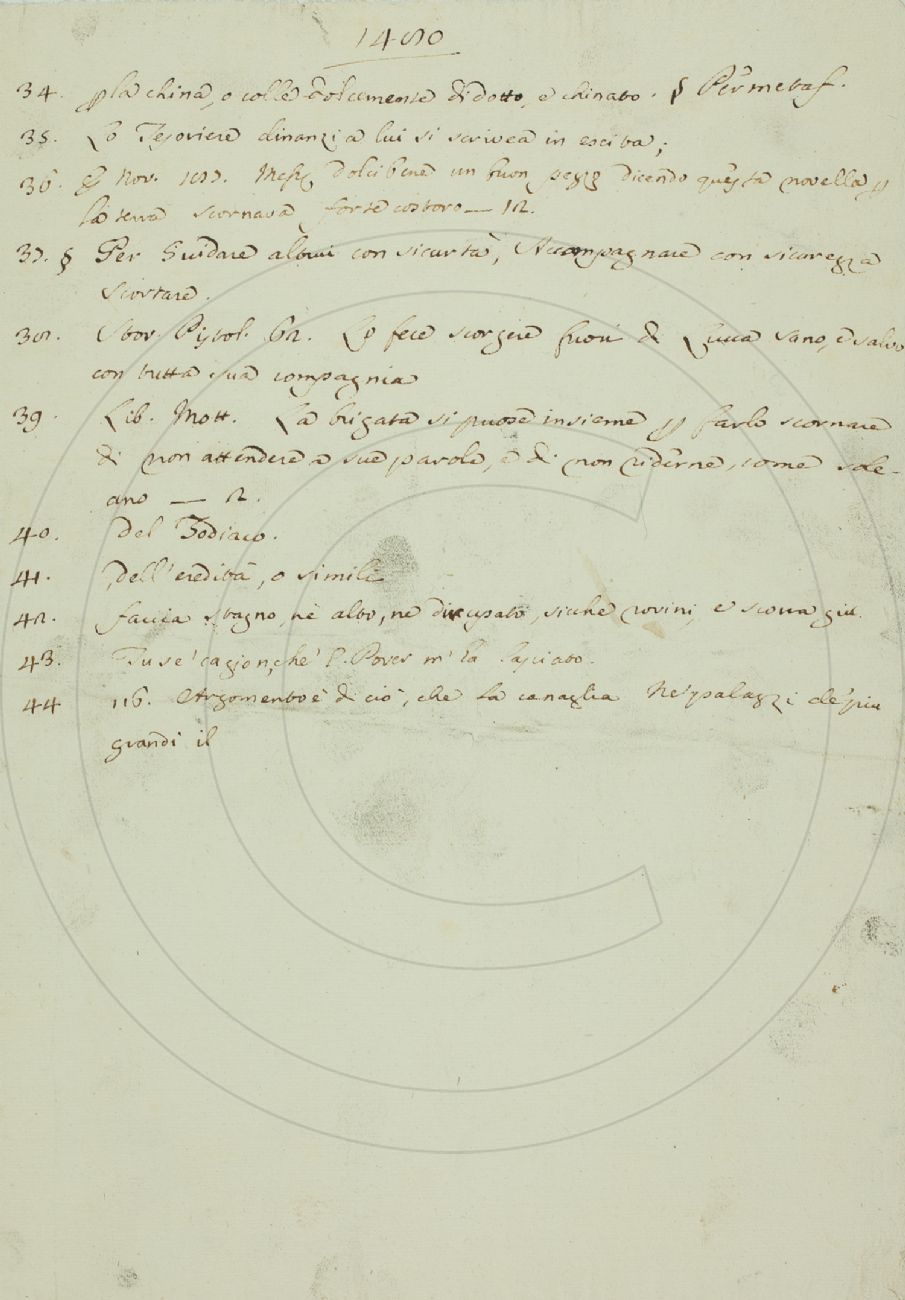 1480
34. p la china, o colle dolcemente didotto, e chinato. § Per metaf.
35. Lo Tesoriere dinanzi a lui si scrivea in escita;
36. Nov. Mess. Dolcibene un buon dicendo questa novella p
la terra scornava forte costoro — 12.
37. § Per Guidare altrui con sicurtà, Accompagnare con sicurezza
Scortare.
38. Stor. Pistol. 62. Lo fece scorgere fuori di Lucca sano, e salvo
con tutta sua compagnia
39. Lib. Mott. La brigata si puose insieme p farlo scornare
di non attendere a sue parole, e di non riderne, come sole-
ano — 2.
40. Del Zodiaco.
41. Dell'eredità, o simili
42. faccia stagno, nè alto, nè dirupato, sicche rovini, e scorra giù.
43. Tu se' cagion, che P. Porer m' ha lasciato.
44 116. Argomento è di ciò, che la canaglia Ne' palazzi de' più
grandi il